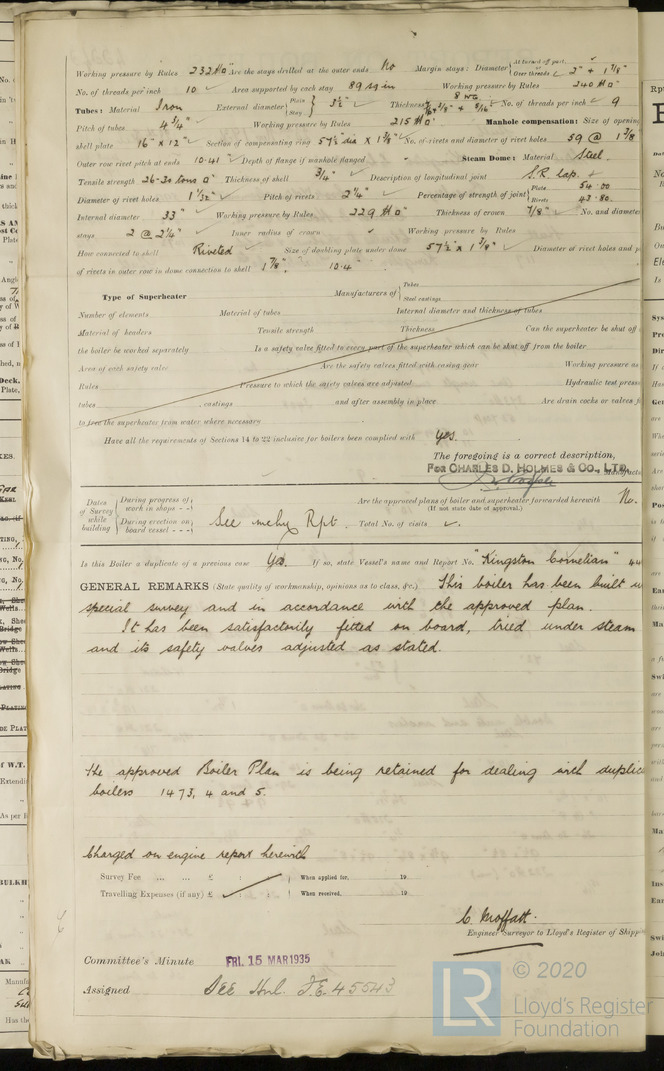 Working pressure by Rules 232 #□" Are the stays drilled at the outer ends No Margin stays: Diameter { At turned off part, Over threads 2" + 1 7/8"
No. of threads per inch 10 Area supported by each stay 89 sq in Working pressure by Rules 240 #□"
Tubes: Material Iron External diameter { Plain Stay 3½" Thickness 8 WG 5/16" No. of threads per inch 9
Pitch of tubes 4 3/4" Working pressure by Rules 215 #□" Manhole compensation: Size of opening
shell plate 16" x 12" Section of compensating ring 57½" dia x 1 3/8" No. of rivets and diameter of rivet holes 59 @ 1 3/8
Outer row rivet pitch at ends 10.41 Depth of flange if manhole flanged Steam Dome: Material Steel
Tensile strength 26-30 tons □" Thickness of shell 3/4" Description of longitudinal joint S.R. Lap.
Diameter of rivet holes 1 1/32" Pitch of rivets 2 1/4" Percentage of strength of joint { Plate 54.00 Rivets 43.80
Internal diameter 33" Working pressure by Rules 229 #□" Thickness of crown 7/8" No. and diameter
stays 2 @ 2 1/4" Inner radius of crown Working pressure by Rules
How connected to shell Riveted Size of doubling plate under dome 57½" x 1 3/8" Diameter of rivet holes and p
of rivets in outer row in dome connection to shell 1 3/8". 10.4"
Type of Superheater Manufacturers of { Tubes Steel castings
Number of elements Material of tubes Internal diameter and thickness of tubes
Material of headers Tensile strength Thickness Can the superheater be shut off
the boiler be worked separately Is a safety valve fitted to every part of the superheater which can be shut off from the boiler
Area of each safety valve Are the safety valves fitted with easing gear Working pressure as
Rules Pressure to which the safety valves are adjusted Hydraulic test press
tubes castings and after assembly in place Are drain cocks or valves f
to free the superheater from water where necessary
Have all the requirements of Sections 14 to 22 inclusive for boilers been complied with Yes.
The foregoing is a correct description,
For CHARLES D. HOLMES & CO., LTD. Manufactu
Dates of Survey while building { During progress of work in shops - - During erection on board vessel - - - } See mchy Rpt. Are the approved plans of boiler and superheater forwarded herewith No.
(If not state date of approval.)
Total No. of visits
Is this Boiler a duplicate of a previous case Yes. If so, state Vessel's name and Report No. "Kingston Cornelian" 44
GENERAL REMARKS (State quality of workmanship, opinions as to class, &c.) This boiler has been built u
special survey and in accordance with the approved plan.
It has been satisfactorily fitted on board, tried under steam
and its safety valves adjusted as stated.
The approved Boiler Plan is being retained for dealing with duplic
boilers 1473, 4 and 5.
Charged on engine report herewith
Survey Fee ... ... £ : : When applied for, 19
Travelling Expenses (if any) £ : : When received, 19
C. Moffatt.
Engineer Surveyor to Lloyd's Register of Shipp
Committee's Minute FRI. 15 MAR 1935
Assigned See Hul. F.E. 45543
© 2020
LR Lloyd's Register
Foundation